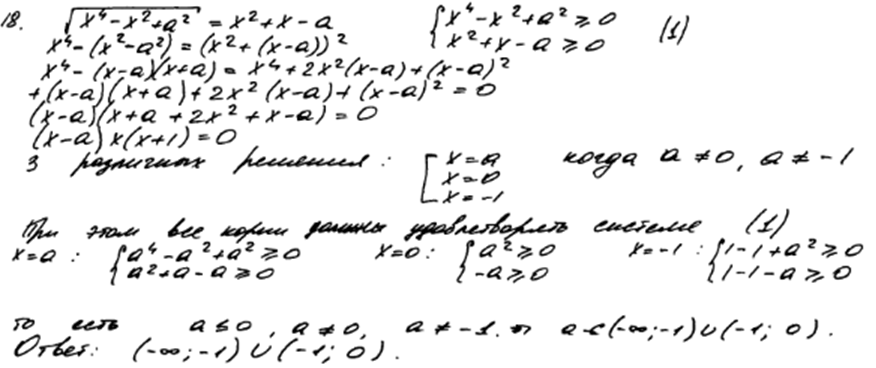 18. √(x⁴-x²+a²) = x²+x-a {x⁴-x²+a² ≥ 0 (1)
x⁴-(x²-a²) = (x²+(x-a))² {x²+x-a ≥ 0
x⁴-(x-a)(x+a) = x⁴+2x²(x-a)+(x-a)²
+(x-a)(x+a)+2x²(x-a)+(x-a)² = 0
(x-a)(x+a+2x²+x-a) = 0
(x-a)x(x+1) = 0
3 различных решения: [x=a когда a≠0, a≠-1
x=0
x=-1
При этом все корни должны удовлетворять системе (1)
x=a: {a⁴-a²+a² ≥ 0 x=0: {a² ≥ 0 x=-1: {1-1+a² ≥ 0
{a²+a-a ≥ 0 {-a ≥ 0 {1-1-a ≥ 0
то есть a ≤ 0, a ≠ 0, a ≠ -1. a ∈ (-∞; -1) ∪ (-1; 0).
Ответ: (-∞; -1) ∪ (-1; 0).